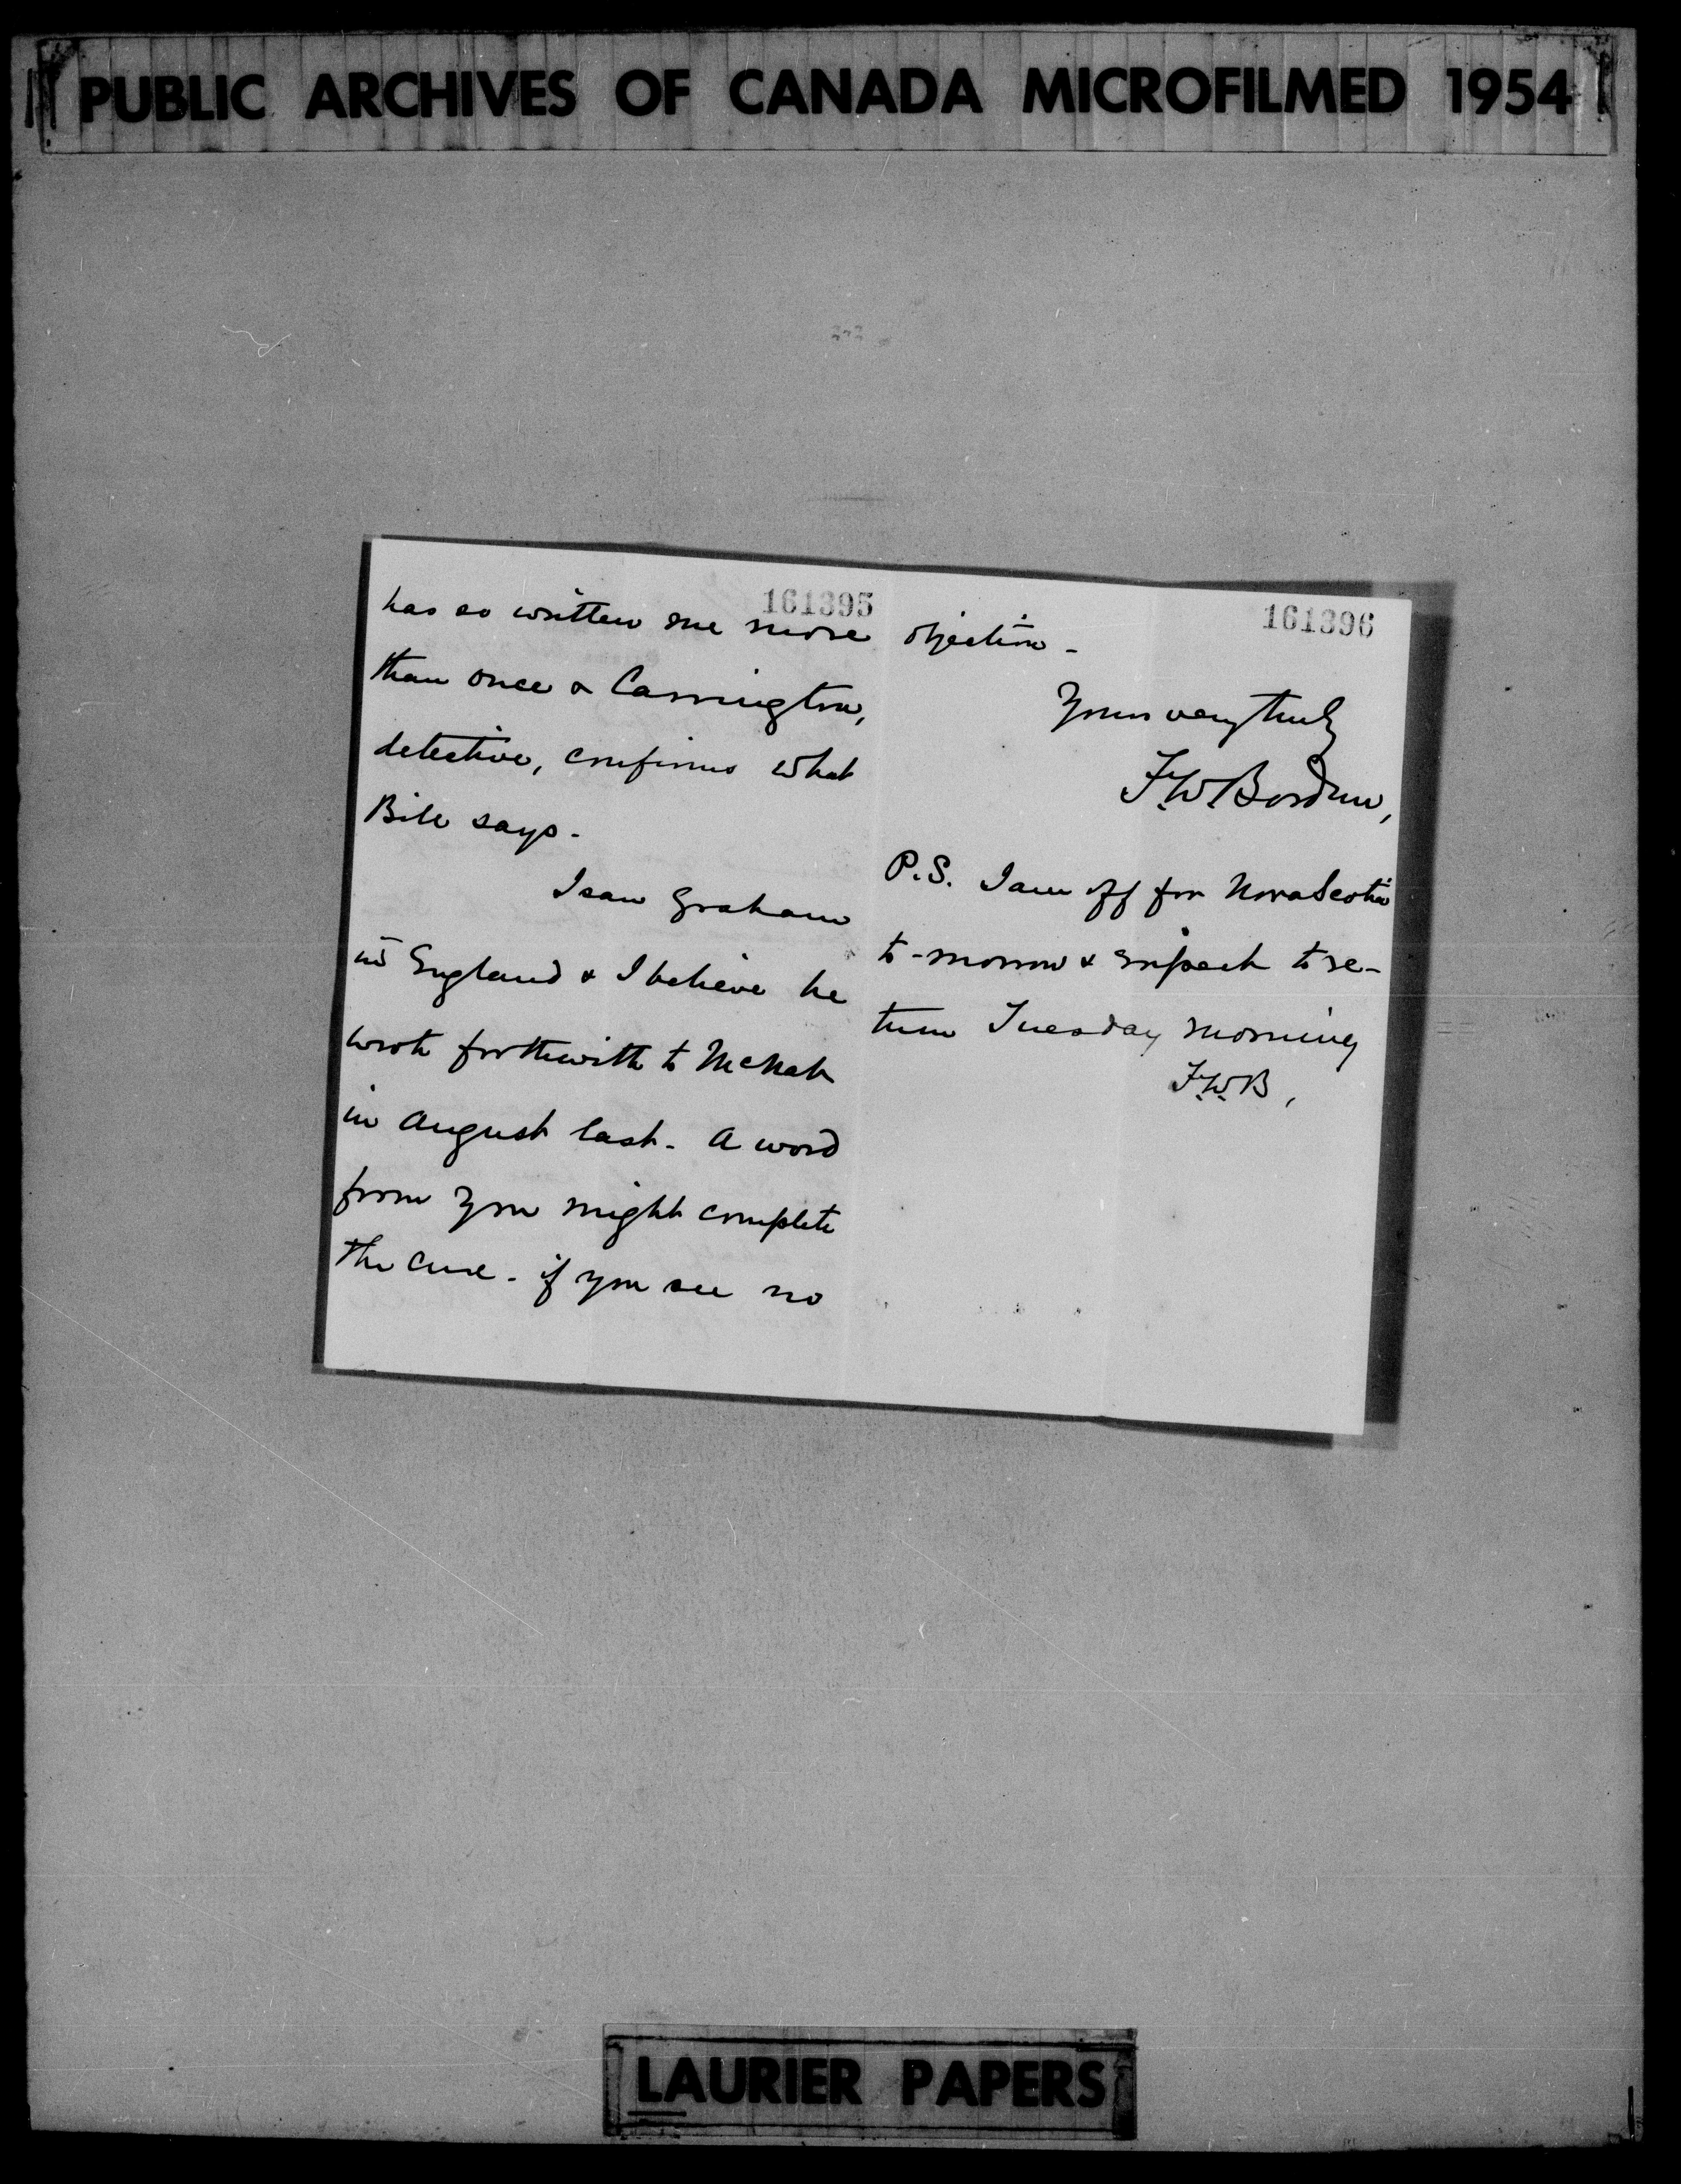 PUBLIC ARCHIVES OF CANADA MICROFILMED 1954
161395
has so written me more
than once & Carrington,
detective, confirms what
Bile says.
I saw Graham
in England & I believe he
wrote forthwith to McNab
in August last. A word
from you might complete
the cure - if you see no
161396
objection -
Yours very truly
F.W. Borden,
P.S. I am off for Nova Scotia
to-morrow & expect to re-
turn Tuesday morning
F.W.B,
LAURIER PAPERS